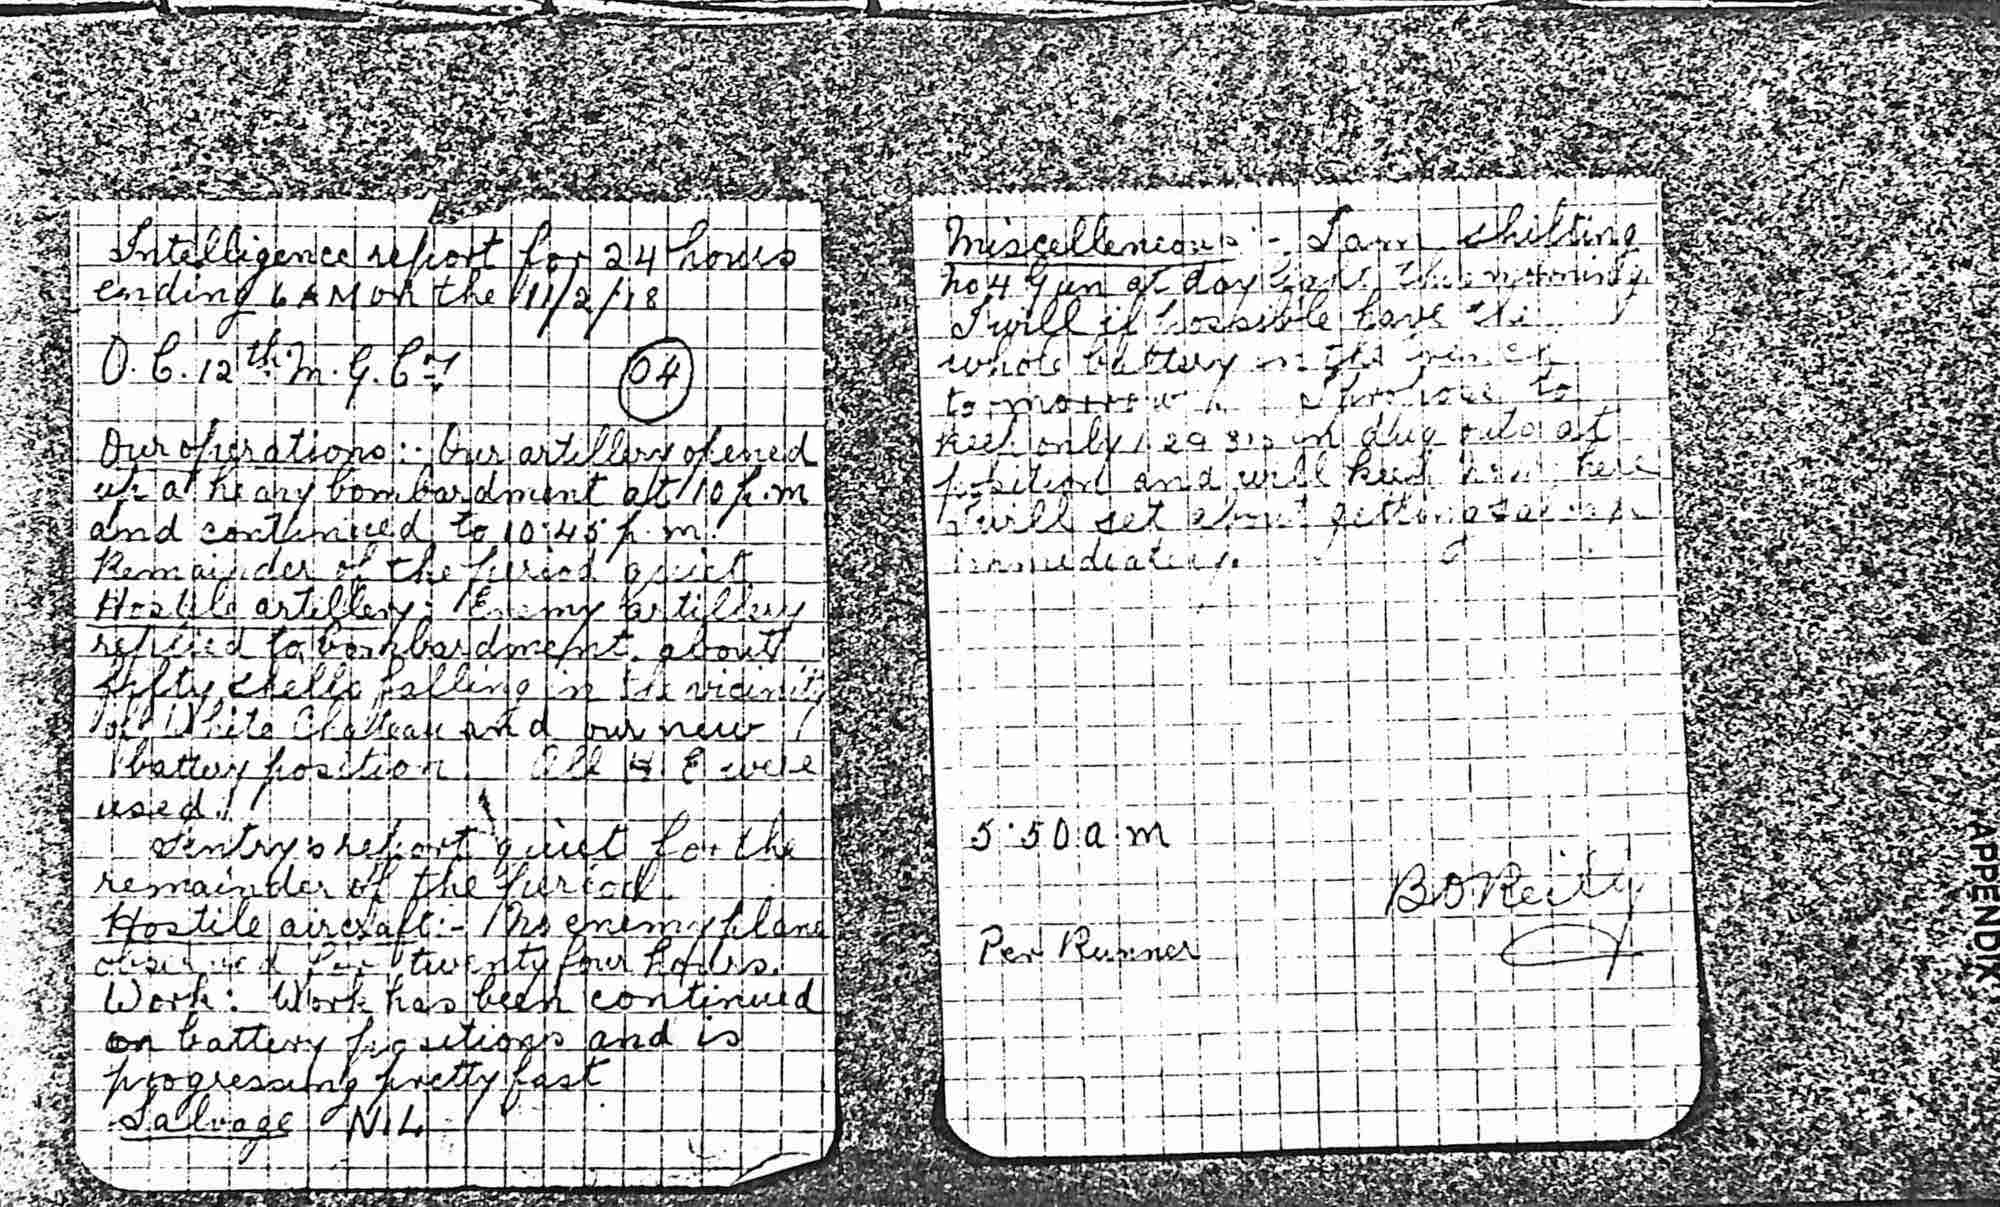 Intelligence report for 24 hours
ending 6 AM on the 11/2/18
O.C. 12th M.G. Coy
04
Our operations:- Our artillery opened
up a heavy bombardment at 10 p.m
and continued to 10.45 p.m.
Remainder of the period quiet
Hostile artillery: Enemy artillery
replied to bombardment about
fifty shells falling in the vicinity
of White Chateau and our new
battery position. All H.E were
used.
Sentrys report quiet for the
remainder of the period.
Hostile aircraft:- No enemy plane
observed for twenty four hours.
Work: Work has been continued
on battery positions and is
progressing pretty fast
Salvage NIL
Miscelleneous:- I am shifting
no 4 Gun at day this morning.
I will if possible have the
whole battery in the
tomorrow. I propose to
keep only in dug outs at
position and will keep here
I will set about getting
immediately.
5.50 a.m
B O Reily
Per Runner
APPENDIX